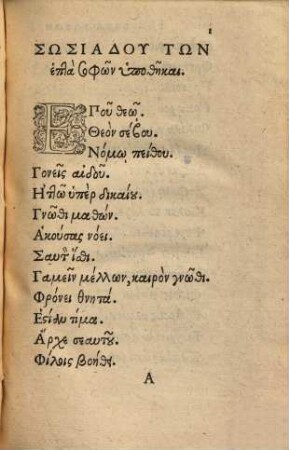 1
ΣΩΣΙΑΔΟΥ ΤΩΝ
ἑπτὰ σοφῶν ὑποθῆκαι.
ΕΠΟΥ θεῷ.
Θεὸν σέβου.
Νόμῳ πείθου.
Γονεῖς αἰδοῦ.
Ηττῶ ὑπὲρ δικαίου.
Γνῶθι μαθών.
Ακούσας νόει.
Σαυτὸν ἴσθι.
Γαμεῖν μέλλων, καιρὸν γνῶθι.
Φρόνει θνητά.
Εστίαν τίμα.
Αρχε σεαυτοῦ.
Φίλοις βοήθει.
A